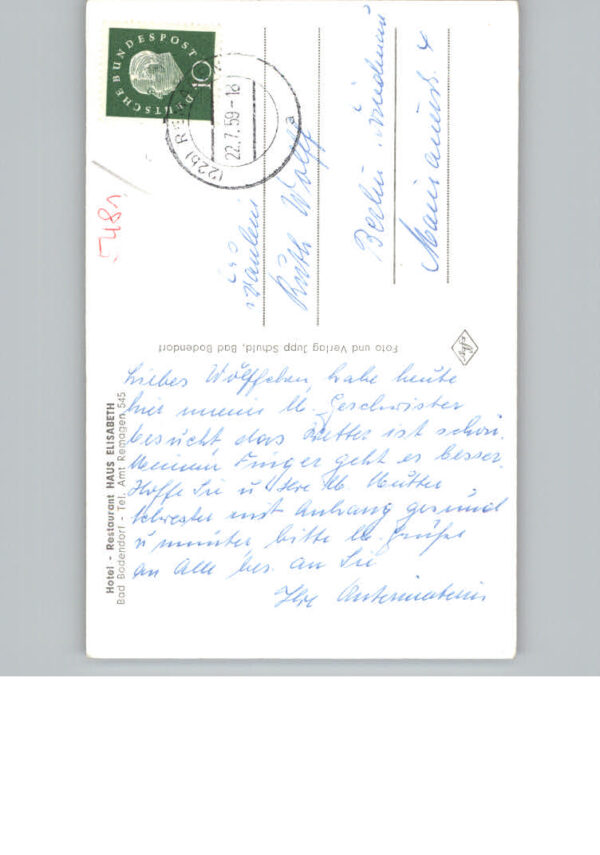 Hotel - Restaurant HAUS ELISABETH
Bad Bodendorf - Tel. Amt Remagen 545
Liebes Wölffchen, habe heute
hier meine lb. Geschwister
besucht das Wetter ist schön.
Meinem Finger geht es besser.
Hoffe Sie u Ihre lb. Mutter
Schwester mit Anhang gesund
u munter, bitte lb. Grüße
an Alle bes. an Sie
Ihre
Foto und Verlag Jupp Schuld, Bad Bodendorf
DEUTSCHE BUNDESPOST
10
(22b) RE
22.7.59-18
a
Fräulein
Ruth Wolff
Berlin
4
5481